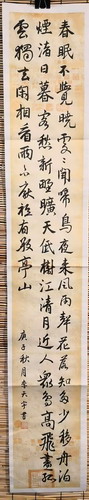 春眠不覺曉處々聞啼鳥夜來風雨聲花落知多少移舟泊
煙渚日暮客愁新野曠天低樹江清月近人眾鳥高飛盡孤
雲獨去閑相看兩不厭祗有敬亭山
庚子秋月李天宇書